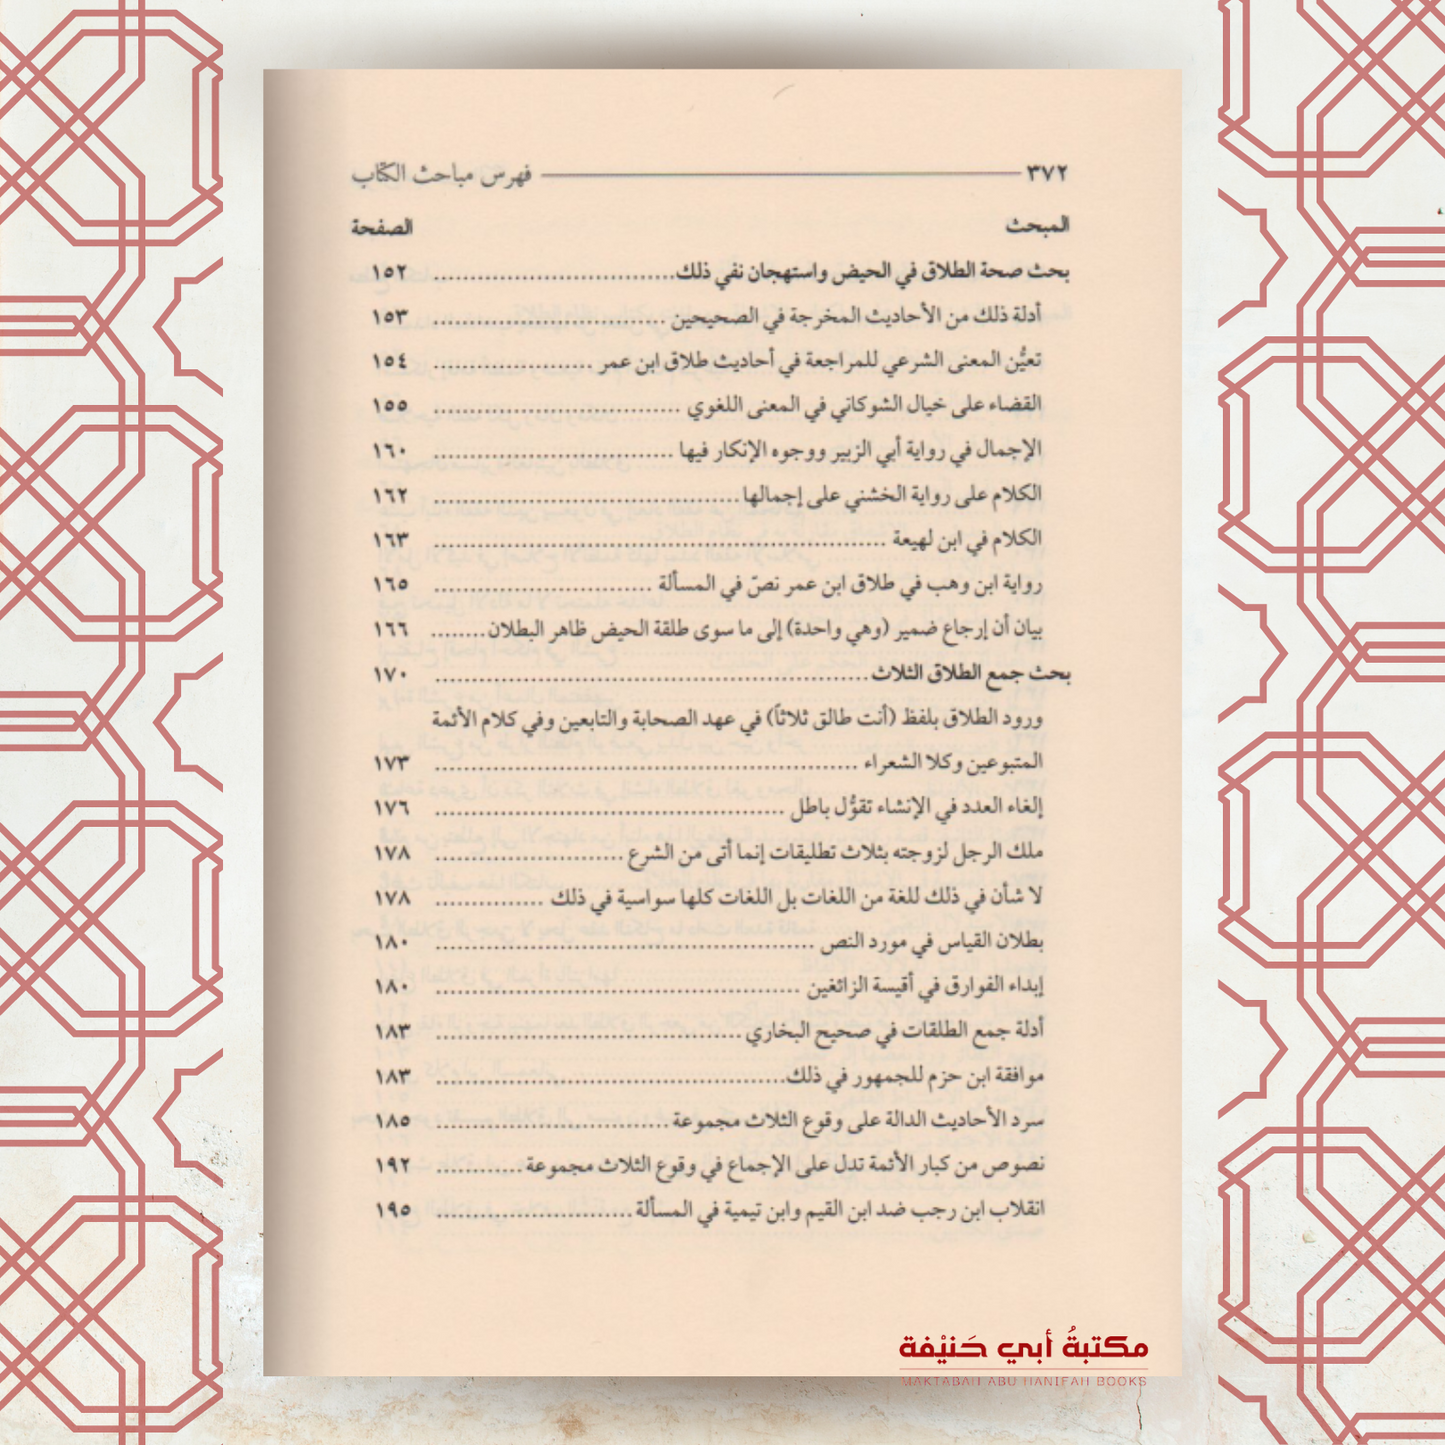 ٣٧٢ فهرس مباحث الكتاب
المبحث الصفحة
بحث صحة الطلاق في الحيض واستهجان نفي ذلك ١٥٢
أدلة ذلك من الأحاديث المخرجة في الصحيحين ١٥٣
تعيُّن المعنى الشرعي للمراجعة في أحاديث طلاق ابن عمر ١٥٤
القضاء على خيال الشوكاني في المعنى اللغوي ١٥٥
الإجمال في رواية أبي الزبير ووجوه الإنكار فيها ١٦٠
الكلام على رواية الخشني على إجمالها ١٦٢
الكلام في ابن لهيعة ١٦٣
رواية ابن وهب في طلاق ابن عمر نصّ في المسألة ١٦٥
بيان أن إرجاع ضمير (وهي واحدة) إلى ما سوى طلقة الحيض ظاهر البطلان ١٦٦
بحث جمع الطلاق الثلاث ١٧٠
ورود الطلاق بلفظ (أنت طالق ثلاثاً) في عهد الصحابة والتابعين وفي كلام الأئمة
المتبوعين وكلا الشعراء ١٧٣
إلغاء العدد في الإنشاء تقوُّل باطل ١٧٦
ملك الرجل لزوجته بثلاث تطليقات إنما أتى من الشرع ١٧٨
لا شأن في ذلك للغة من اللغات بل اللغات كلها سواسية في ذلك ١٧٨
بطلان القياس في مورد النص ١٨٠
إبداء الفوارق في أقيسة الزائغين ١٨٠
أدلة جمع الطلقات في صحيح البخاري ١٨٣
موافقة ابن حزم للجمهور في ذلك ١٨٣
سرد الأحاديث الدالة على وقوع الثلاث مجموعة ١٨٥
نصوص من كبار الأئمة تدل على الإجماع في وقوع الثلاث مجموعة ١٩٢
انقلاب ابن رجب ضد ابن القيم وابن تيمية في المسألة ١٩٥
مكتبةُ أبي حَنيْفة
MAKTABAH ABU HANIFAH BOOKS